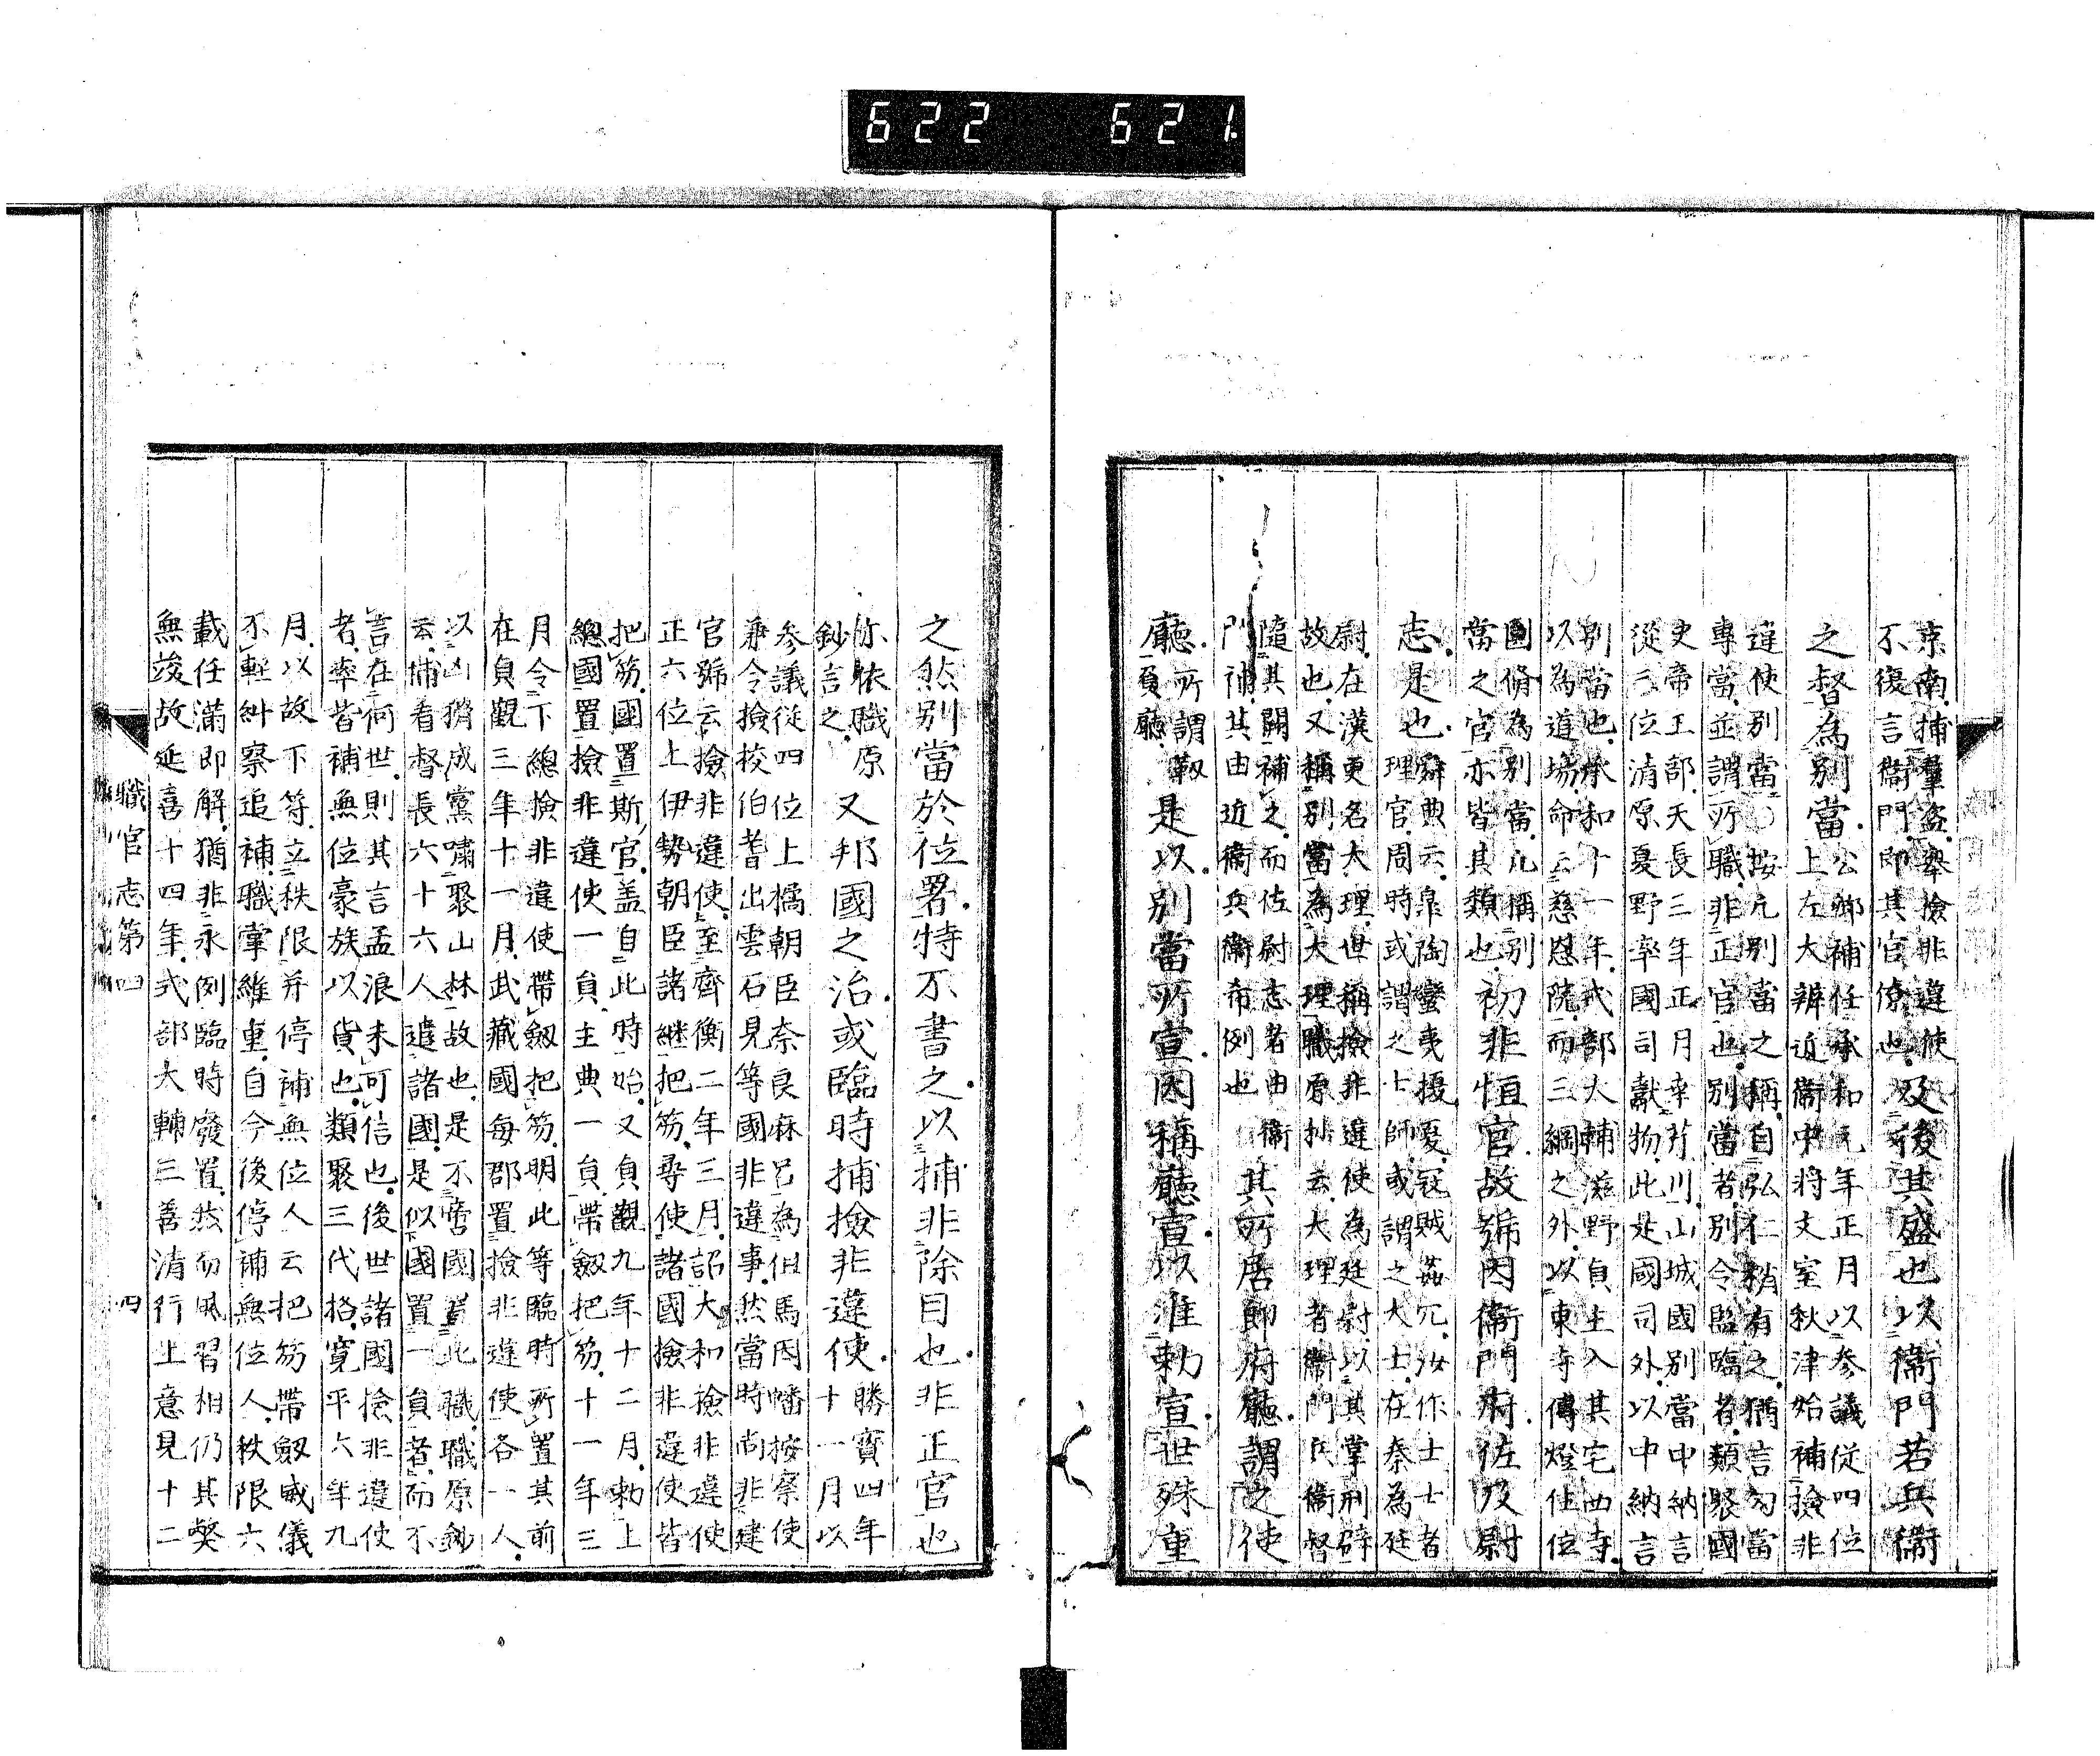 622 621
京南、捕羣盜、擧撿非違使
不復言衞門、即其官僚也、及後其盛也以衞門若兵衞
之督為別當、公卿補任承和元年正月以參議從四位
上左大辨近衞中將文室秋津始補撿非
違使別當○按凡別當之稱、自弘仁稍有之、猶言勾當
專當、並謂所職、非正官也、別當者、別令監臨者、類聚國
史帝王部、天長三年正月幸芹川、山城國別當中納言
從三位清原夏野率國司獻物、此是國司外、以中納言
別當也、承和十一年、式部大輔滋野貞主入其宅西寺、
以為道場、命云慈恩院、而三綱之外、以東寺傳燈住位
國脩為別當、凡稱別
當之官亦皆其類也、初非恒官、故號因衞門府、佐及尉
志、是也、舜典云、皐陶蠻夷猾夏、寇賊姦宄、汝作士士者
理官、周時或謂之士師、或謂之大士、在秦為廷
尉、在漢更名大理、世稱撿非違使為廷尉、以其掌刑辟
故也、又稱別當為大理、職原抄云、大理者衞門兵衞督
隨其關補之、而佐尉志者由衞
門補、其由近衞兵衞希例也 其所居即府廳、謂之使
廳、所謂靱
負廳、是以、別當所宣、因稱廳宣、以准勅宣、世殊重
之然別當於位署、特不書之、以捕非除目也、非正官也
依職原
鈔言之、又邦國之治、或臨時捕撿非違使、勝寳四年
十一月以
參議從四位上橘朝臣奈良麻呂為但馬因幡按察使
兼令撿挍伯耆出雲石見等國非違事、然當時尚非建
官號云撿非違使、至齊衡二年三月、詔大和撿非違使
正六位上伊勢朝臣諸繼把笏、尋使諸國撿非違使皆
把笏、國置斯官、盖自此時始、又貞觀九年十二月、勅上
總國置撿非違使一員、主典一員、帶劔把笏、十一年三
月令下總撿非違使帶劔把笏、明此等臨時所置其前
在貞觀三年十一月、武藏國每郡置撿非違使各一人、
以凶猾成黨嘯聚山林故也、是不啻國置此職、職原鈔
云、捕看督長六十六人、遣諸國、是似國置一員者、而不
言在何世、則其言孟浪未可信也、後世諸國撿非違使
者、率皆補無位豪族以貨也、類聚三代格、寛平六年九
月、以故下符、立秩限并停補無位人云把笏帶劔威儀
不輕糾察追補、職掌維重、自今後停補無位人、秩限六
載任滿即解、猶非永例臨時發置、然而風習相仍其弊
無竣故延喜十四年、式部大輔三善清行上意見十二
職官志第四
四